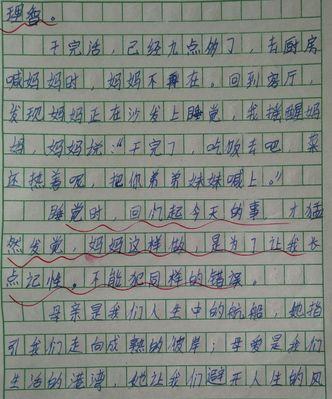 理智。
干完活，已经九点钟了，去厨房
喊妈妈时，妈妈不在。回到客厅，
发现妈妈正在沙发上睡觉，我摇醒妈
妈，妈妈说：“干完了，吃饭去吧，菜
还热着呢，把你弟弟妹妹喊上。”
睡觉时，回忆起今天的事，才猛
然发觉，妈妈这样做，是为了让我长
点记性。不能犯同样的错误。
母亲是我们人生中的航船，她指
引我们走向成熟的彼岸；母爱是我们
生活的港湾，她让我们避开人生的风